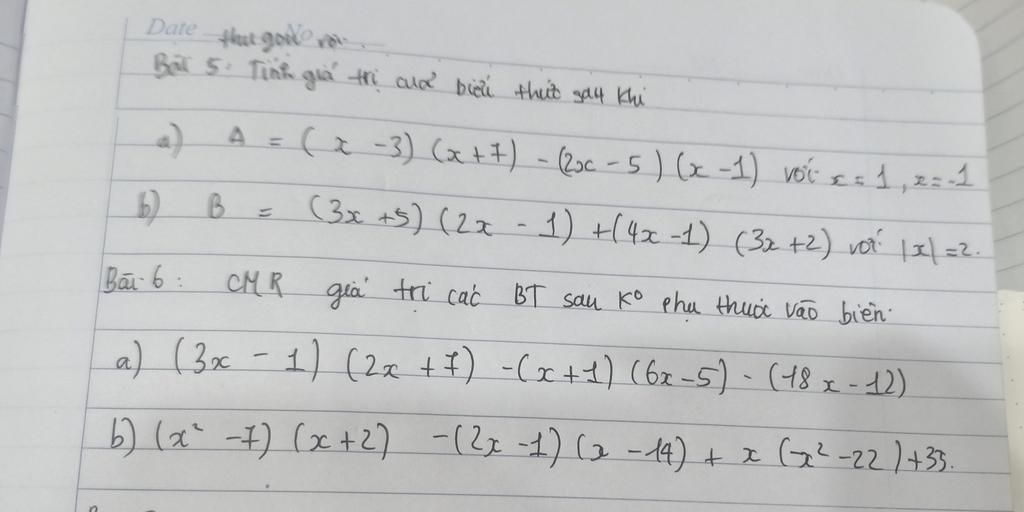 Date No
thu gọn rồi.
Bài 5: Tính giá trị của biểu thức say khi
a) A = (x - 3) (x + 7) - (2x - 5) (x - 1) với x = 1, x = -1
b) B = (3x + 5) (2x - 1) + (4x - 1) (3x + 2) với |x| = 2.
Bài 6: CMR giá trị các BT sau K° phụ thuộc vào biến.
a) (3x - 1) (2x + 7) - (x + 1) (6x - 5) - (18x - 12)
b) (x² - 7) (x + 2) - (2x - 1) (x - 14) + x (-x² - 22) + 35.